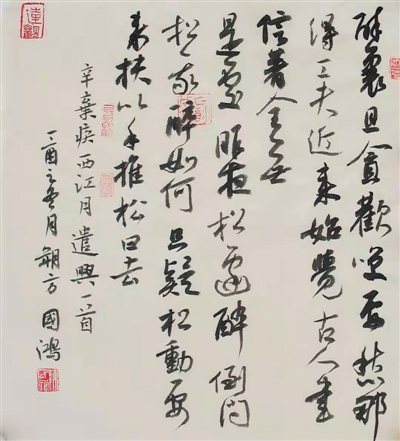 達觀
醉裏且貪歡笑要愁那
得工夫近来始覺古人書
信著全无
是處昨夜松邊醉倒問
松我醉如何只疑松動要
来扶以手推松曰去
辛棄疾西江月遣興一首
丁酉之月朔方國鴻